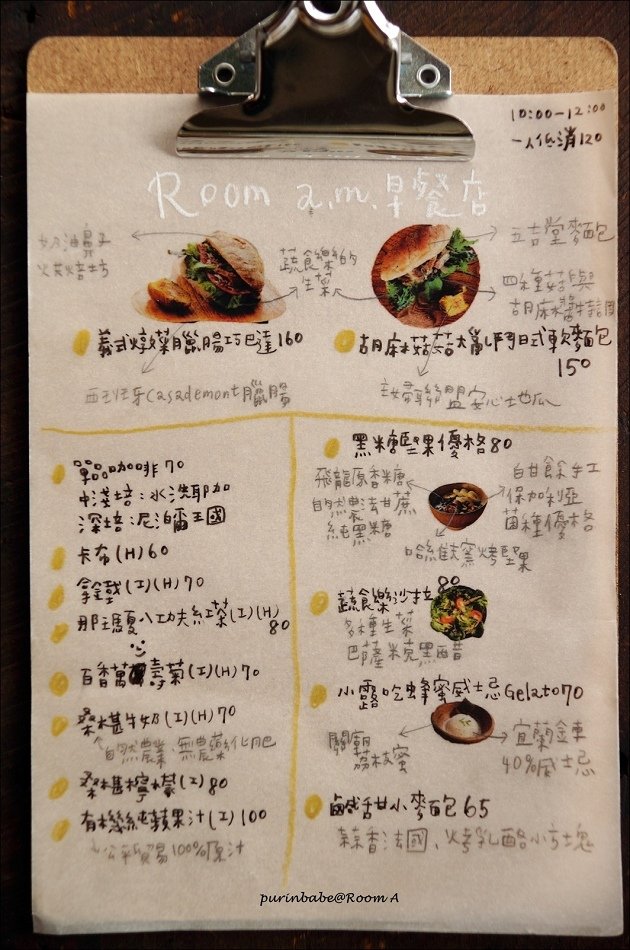 10:00-12:00
一人低消120
Room a.m.早餐店
奶油鼻子
火焙坊
蔬食樂的
生菜
立吉堂麵包
四種菇與
胡麻醬特調
義式燉菜臘腸巧巴達160
胡麻菇菇大亂鬥日式軟麵包
150
西班牙Casademont臘腸
主婦聯盟安心地瓜
單品咖啡70
中淺培:水洗耶加
深培:尼泊爾王國
卡布(H)60
拿鐵(I)(H)70
那瑪夏八工夫紅茶(I)(H)
80
百香萬壽菊(I)(H)70
桑椹牛奶(I)(H)70
自然農業 無農藥化肥
桑椹檸檬(I)80
有機純蘋果汁(I)100
公平貿易100%原汁
黑糖堅果優格80
飛龍原香米糖
自然農法甘蔗
純黑糖
自甘餘手工
保加利亞
菌種優格
哈維克窯烤堅果
蔬食樂沙拉80
多種生菜
巴薩米克黑醋
小露吃蜂蜜威士忌Gelato70
關廟
荔枝蜜
宜蘭金車
40%威士忌
鹹甜小麵包65
蒜香法國、烤乳酪小方塊
purinbabe@Room A